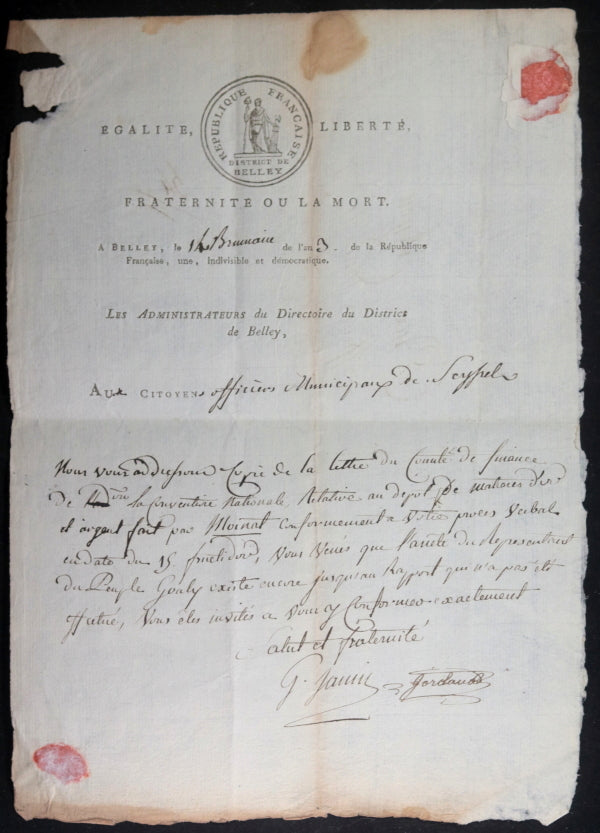 ÉGALITÉ, LIBERTÉ,
RÉPUBLIQUE FRANÇAISE
DISTRICT DE
BELLEY
FRATERNITÉ OU LA MORT.
A BELLEY, le 14 Brumaire de l'an 3. de la République
Française, une, indivisible et démocratique.
LES ADMINISTRATEURS du Directoire du District
de Belley,
AUx CITOYENs officiers Municipaux de Seyssel
Nous vous adressons Copie de la lettre du Comité de finance
de la Convention Nationale, Relative au depot de matieres d'or
et d'argent fait par Moinat conformement a votre procès verbal
en date du 15 fructidor, Vous Verés que l'arreté du Representant
du Peuple Gouly existe encore jusqu'au Rapport qui n'a pas été
effectué, Vous êtes invités a vous y Conformer exactement
Salut et fraternité
G. Janin Jordan